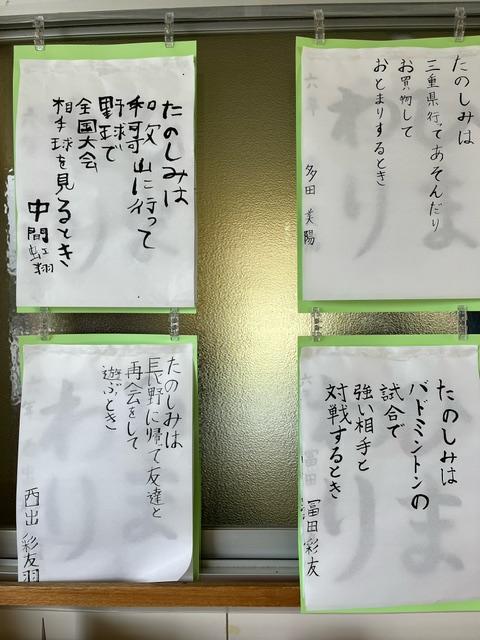 たのしみは
和歌山に行って
野球で
全国大会
相手球を見るとき
中間虹翔
たのしみは
三重県行ってあそんだり
お買物して
おとまりするとき
多田美陽
たのしみは
長野に帰て友達と
再会をして
遊ぶとき
西出彩友羽
たのしみは
バドミントンの
試合で
強い相手と
対戦するとき
冨田彩友